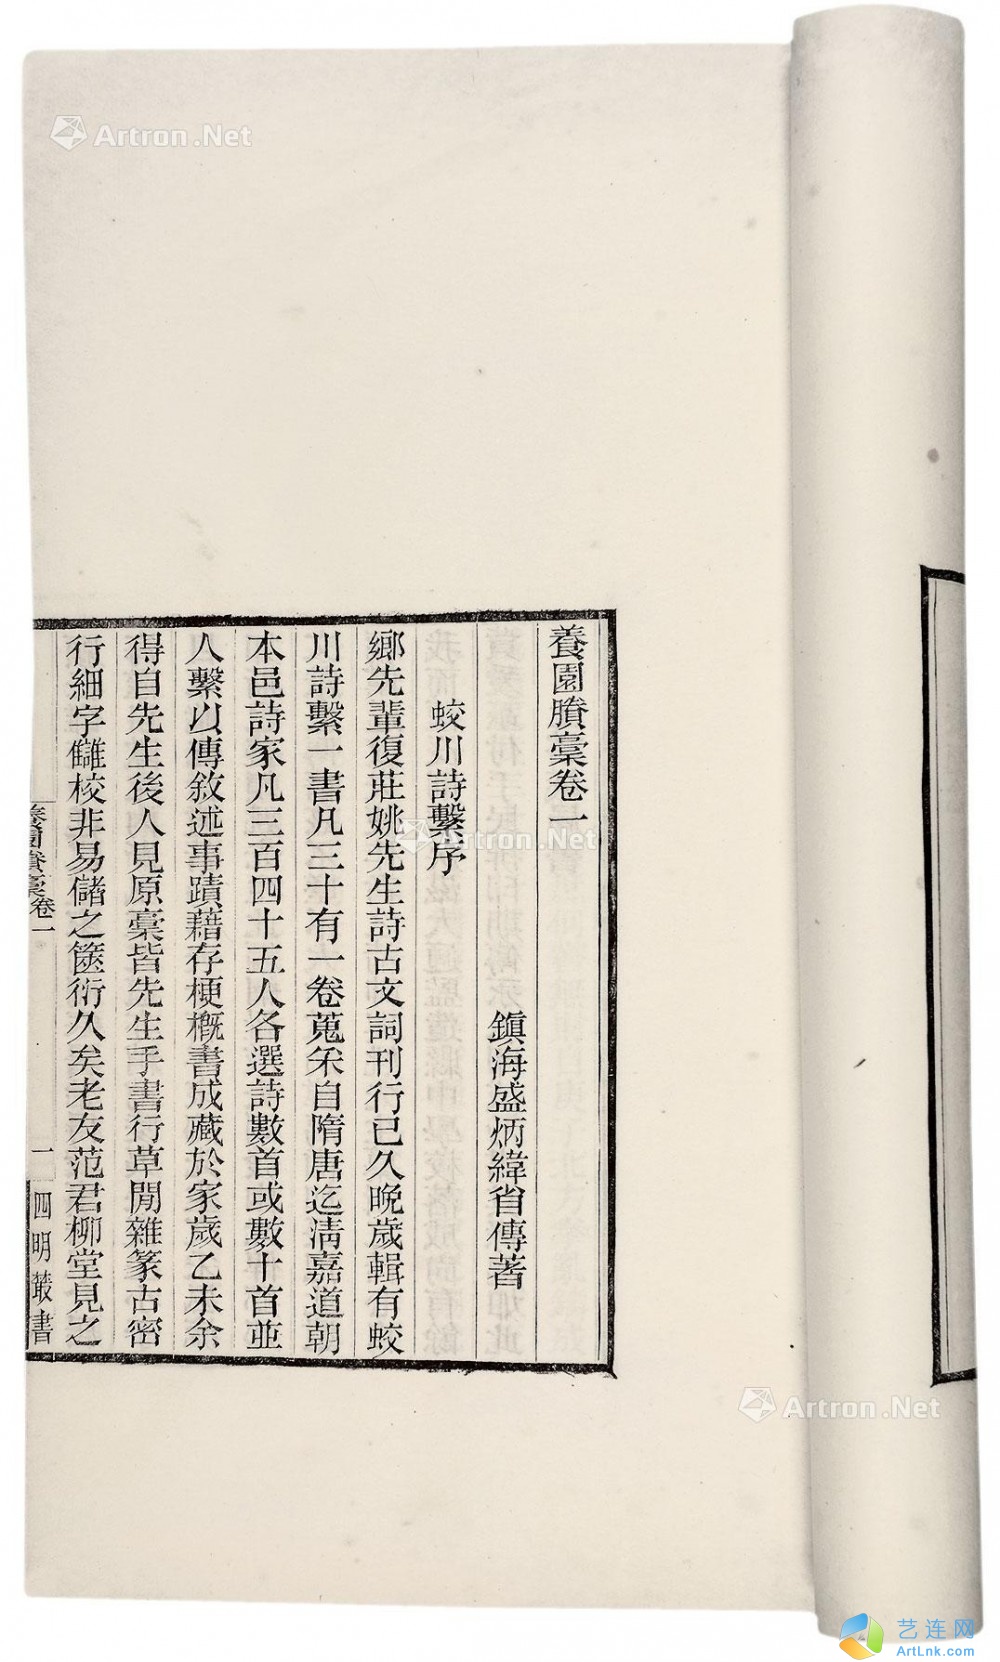 養園賸稾卷一
鎭海盛炳緯省傳著
蛟川詩繫序
鄉先輩復莊姚先生詩古文詞刊行已久晩歲輯有蛟
川詩繫一書凡三十有一卷蒐采自隋唐迄淸嘉道朝
本邑詩家凡三百四十五人各選詩數首或數十首並
人繫以傳敘述事蹟藉存梗槪書成藏於家歲乙未余
得自先生後人見原稾皆先生手書行草閒雜篆古密
行細字讎校非易儲之篋衍久矣老友范君柳堂見之
養園賸稾卷一
一
四明叢書
Artron.Net
Artron.Net
Artron.Net
艺连网
ArtLnk.com